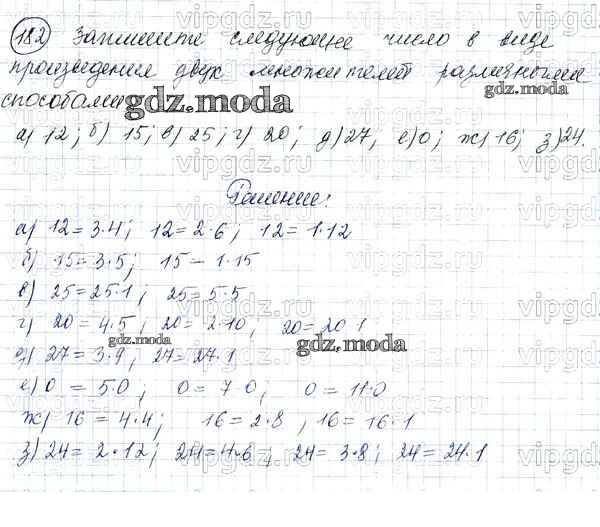 182 Запишите следующие число в виде
произведения двух множителей различными
способами
а) 12; б) 15; в) 25; г) 20; д) 27, е) 0; ж) 16; з) 24.
Решение:
а) 12 = 3·4; 12 = 2·6; 12 = 1·12
б) 15 = 3·5; 15 = 1·15
в) 25 = 25·1; 25 = 5·5
г) 20 = 4·5; 20 = 2·10; 20 = 20·1
д) 27 = 3·9; 27 = 27·1
е) 0 = 5·0; 0 = 7·0; 0 = 11·0
ж) 16 = 4·4; 16 = 2·8, 16 = 16·1
з) 24 = 2·12; 24 = 4·6; 24 = 3·8; 24 = 24·1
gdz.moda
gdz.moda
gdz.moda
gdz.moda
vipgdz